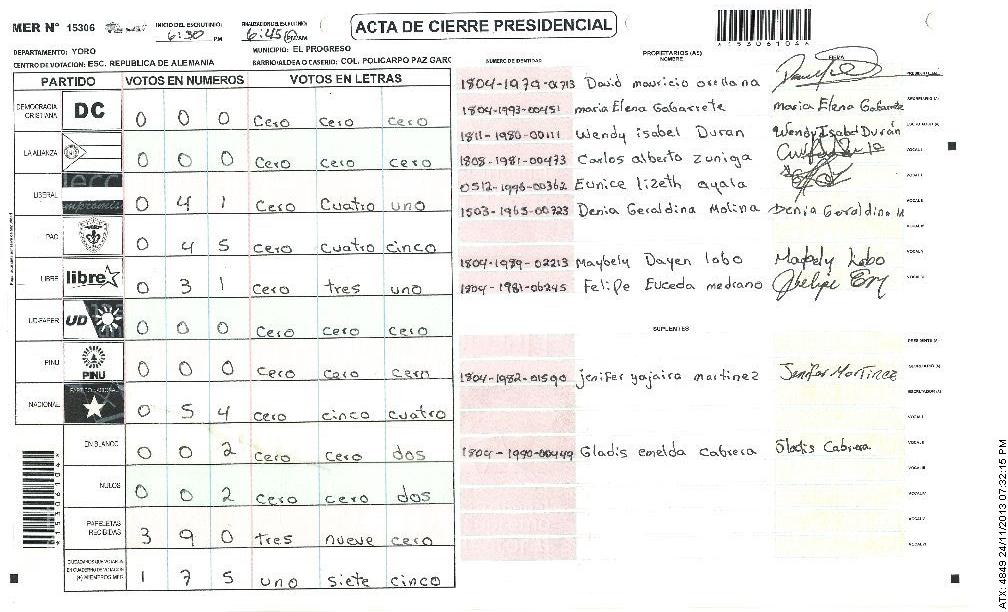 MER Nº 15306 INICIO DEL ESCRUTINIO: 6:30 PM FINALIZACION DEL ESCRUTINIO: 6:45 PM/AM
ACTA DE CIERRE PRESIDENCIAL
A153061044
DEPARTAMENTO: YORO MUNICIPIO: EL PROGRESO
CENTRO DE VOTACION: ESC. REPUBLICA DE ALEMANIA BARRIO/ALDEA O CASERIO: COL. POLICARPO PAZ GARC
PARTIDO VOTOS EN NUMEROS VOTOS EN LETRAS
DEMOCRACIA CRISTIANA DC 0 0 0 Cero cero cero
LA ALIANZA 0 0 0 Cero Cero Cero
LIBERAL 0 4 1 Cero Cuatro uno
PAC 0 4 5 Cero cuatro cinco
LIBRE libre 0 3 1 Cero tres uno
UD-FAPER UD 0 0 0 Cero Cero Cero
PINU PINU 0 0 0 Cero Cero Cero
NACIONAL 0 5 4 Cero cinco cuatro
EN BLANCO 0 0 2 Cero Cero dos
NULOS 0 0 2 Cero cero dos
PAPELETAS RECIBIDAS 3 9 0 tres nueve cero
CIUDADANOS QUE VOTARON EN CUADERNO DE VOTACION (+) MIEMBROS MER 1 7 5 uno siete cinco
NUMERO DE IDENTIDAD PROPIETARIOS (AS) NOMBRE FIRMA
1804-1979-01713 David mauricio orellana PRESIDENTE (A)
1804-1993-00451 maria Elena Gabarrete Maria Elena Gabarrete SECRETARIO (A)
1811-1980-00111 Wendy isabel Duran Wendy Isabel Durán ESCRUTADOR (A)
1808-1981-00473 Carlos alberto zuniga VOCAL I
0512-1996-00362 Eunice lizeth ayala
1503-1965-00723 Denia Geraldina Molina Denia Geraldina M
1804-1989-02213 Maybely Dayen lobo Maybely Lobo
1804-1981-06245 Felipe Euceda medrano Phelipe EM
SUPLENTES
PRESIDENTE (A)
1804-1982-01590 jenifer yajaira martinez Jenifer Martinez SECRETARIO (A)
ESCRUTADOR (A)
VOCAL I
1804-1990-00449 Gladis emelda cabrera Gladis Cabrera VOCAL II
VOCAL III
VOCAL IV
VOCAL V
VOCAL VI
ATX: 4849 24/11/2013 07:32:15 PM